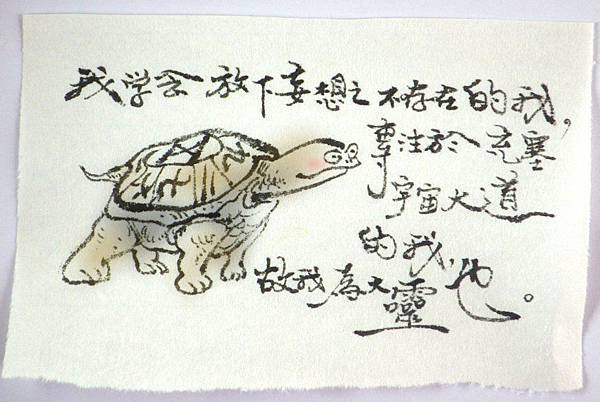 我学会放下妄想之不存在的我，
專注於充塞
宇宙大道
的我，
故我為大靈也。